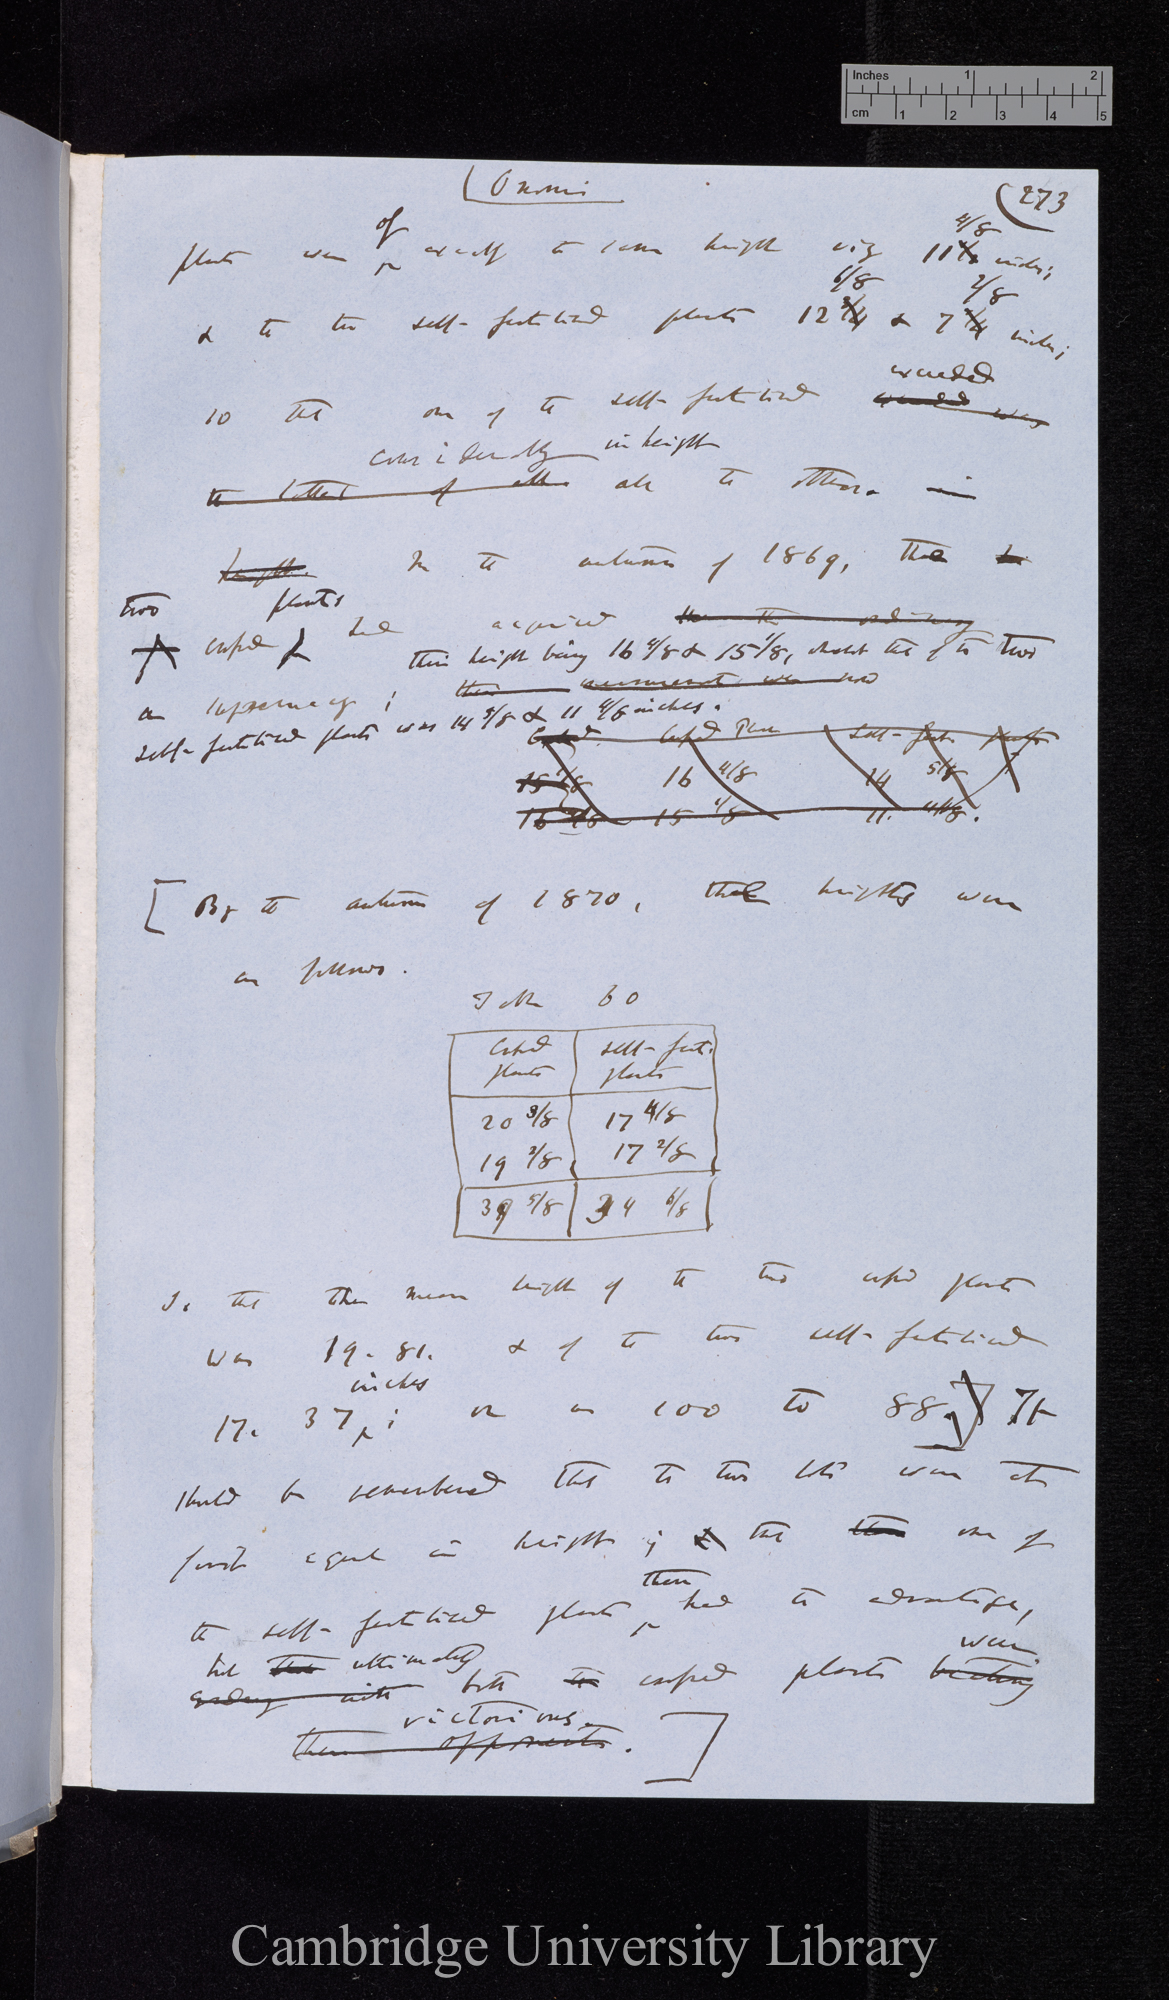 Inches 1 2
cm 1 2 3 4 5
Ononis
273
plants were of exactly the same height viz 11 4/8 inches;
& the two self-fertilised plants 12 6/8 & 7 2/8 inches;
so that one of the self-fertilised exceeded
considerably in height
the tallest of all the others. in
height. In the autumn of 1869, the
two crossed plants had acquired
their height being 16 4/8 & 15 1/8, whilst that of the two
an supremacy; their measurements were now
self-fertilised plants was 14 5/8 & 11 4/8 inches.
Crossed. Crossed Plants Self-fert. plants
15 1/8 16 4/8 14 5/8
16 4/8 15 1/8 11. 4/8.
[By the autumn of 1870, the heights were
as follows.
Table 60
Crossed plants | Self-fert. plants
20 3/8 | 17 4/8
19 2/8 | 17 2/8
39 5/8 | 34 6/8
So that the mean height of the two crossed plants
was 19.81. & of the two self-fertilised
17. 37 inches; or as 100 to 88.] It
should be remembered that the two lots were at
first equal in height; that one of
the self-fertilised plants then had the advantage,
but ultimately
ending with both the crossed plants were
beating
victorious.
their opponents. ]
Cambridge University Library